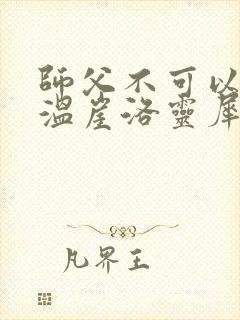 師父不可以
溫崖洛靈犀
凡界王